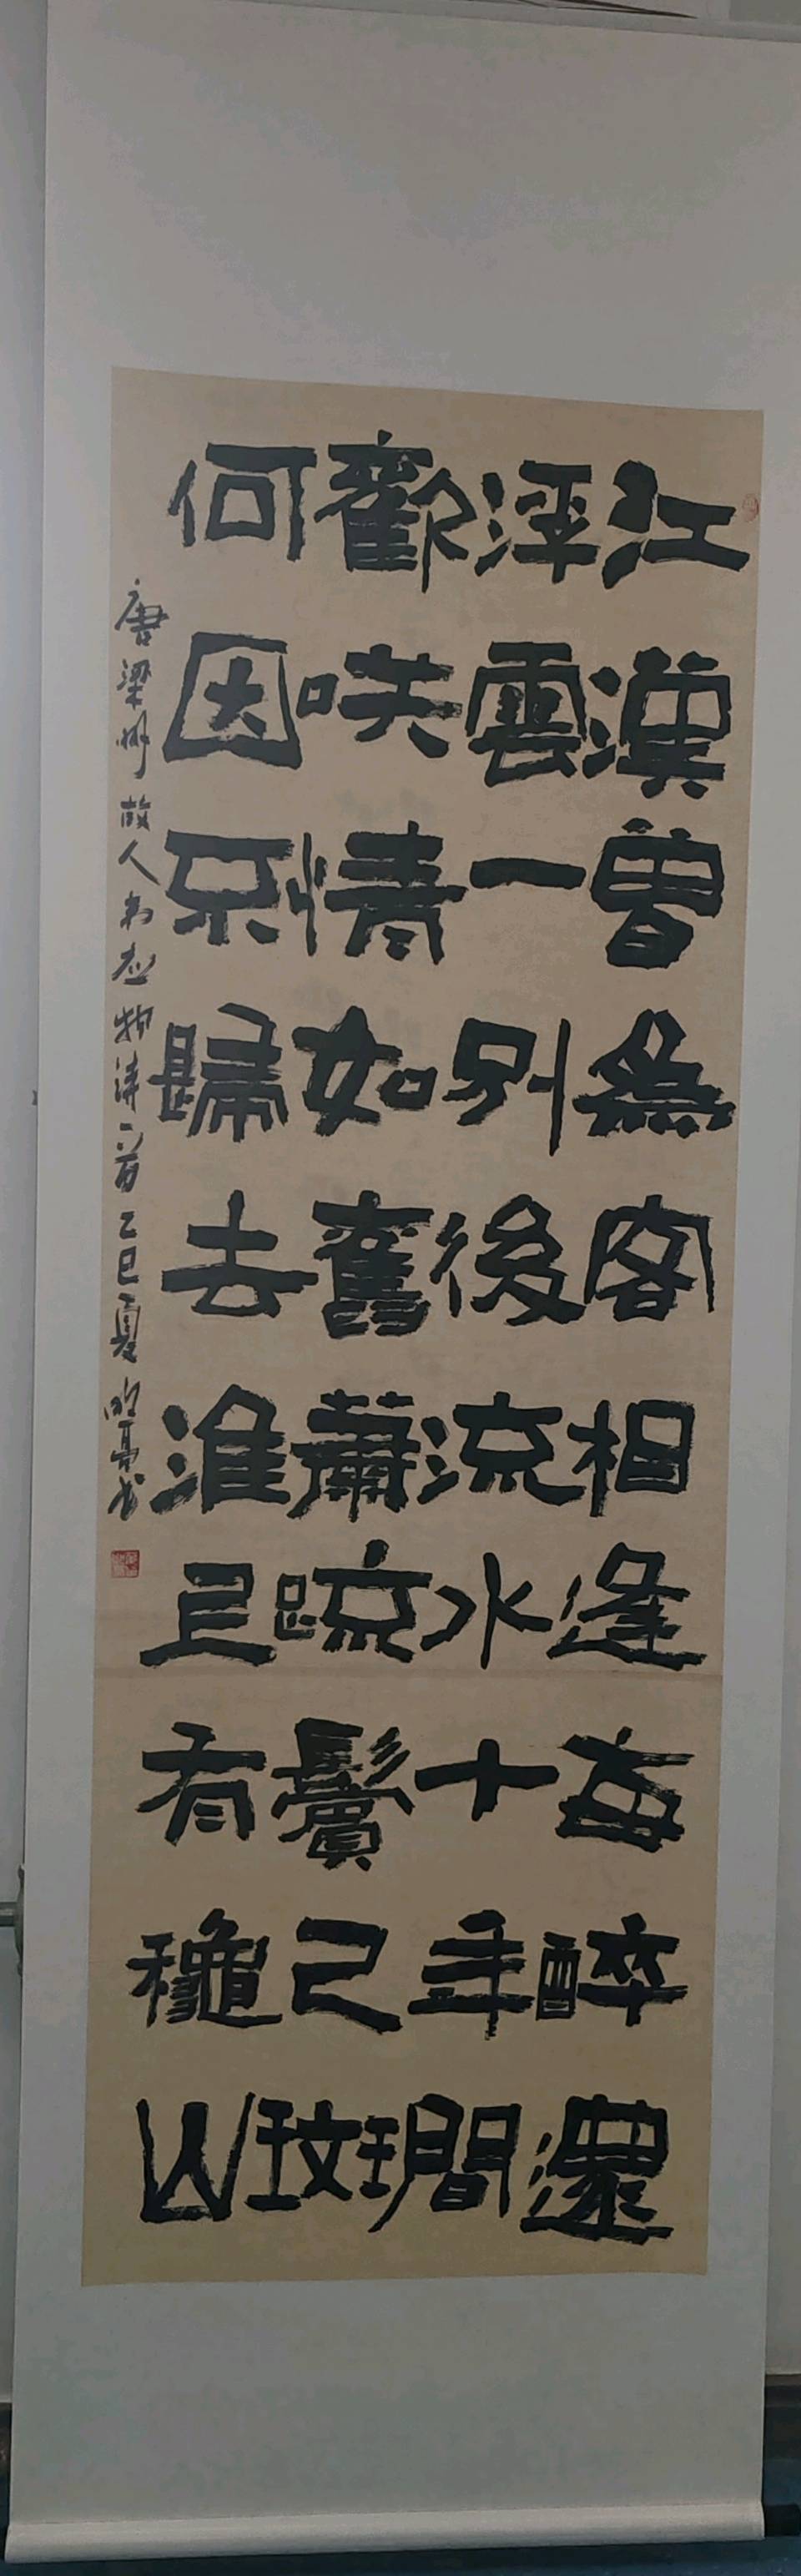 江漢曾為客相逢每醉還
浮雲一別後流水十年間
歡咲情如舊蕭疏鬢已斑
何因不歸去淮上有穐山
唐梁州故人韦应物詩一首乙巳夏明亮书